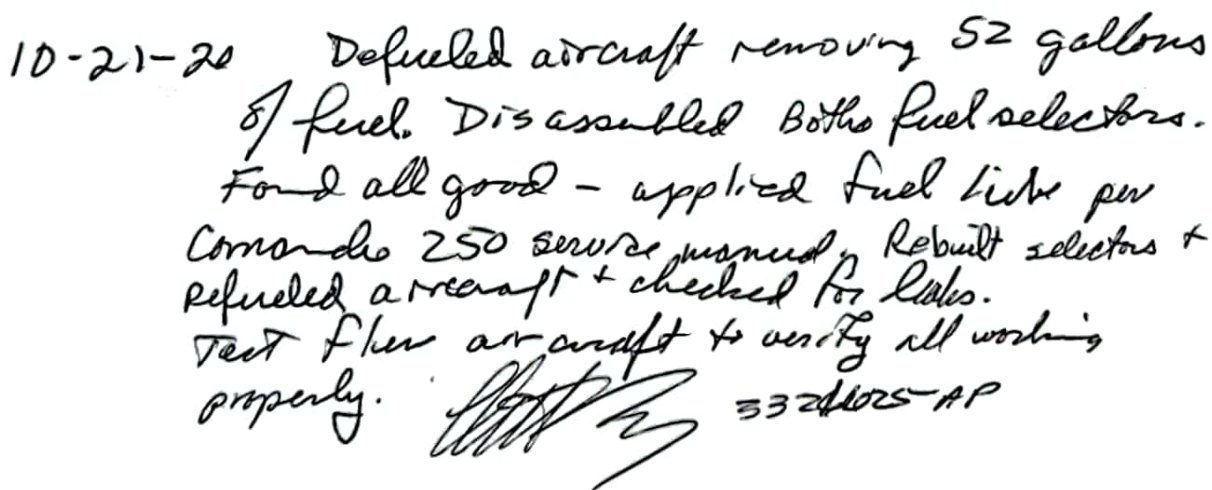 10-21-20 Defueled aircraft removing 52 gallons
of fuel. Disassembled Both fuel selectors.
Found all good - applied fuel lube per
Comanche 250 service manual. Rebuilt selectors +
refueled aircraft + checked for leaks.
Test flew aircraft to verify all working
properly.
AP